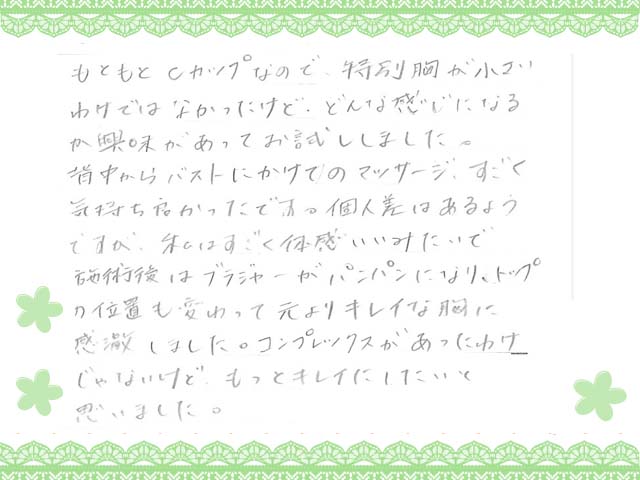 もともとCカップなので、特別胸が小さい
わけではなかったけど、どんな感じになる
か興味があってお試ししました。
背中からバストにかけてのマッサージ、すごく
気持ち良かったです。個人差はあるよう
ですが、私はすごく体感いいみたいで
施術後はブラジャーがパンパンになり、トップ
の位置も変わって元よりキレイな胸に
感激しました。コンプレックスがあったわけ
じゃないけど、もっとキレイにしたいと
思いました。